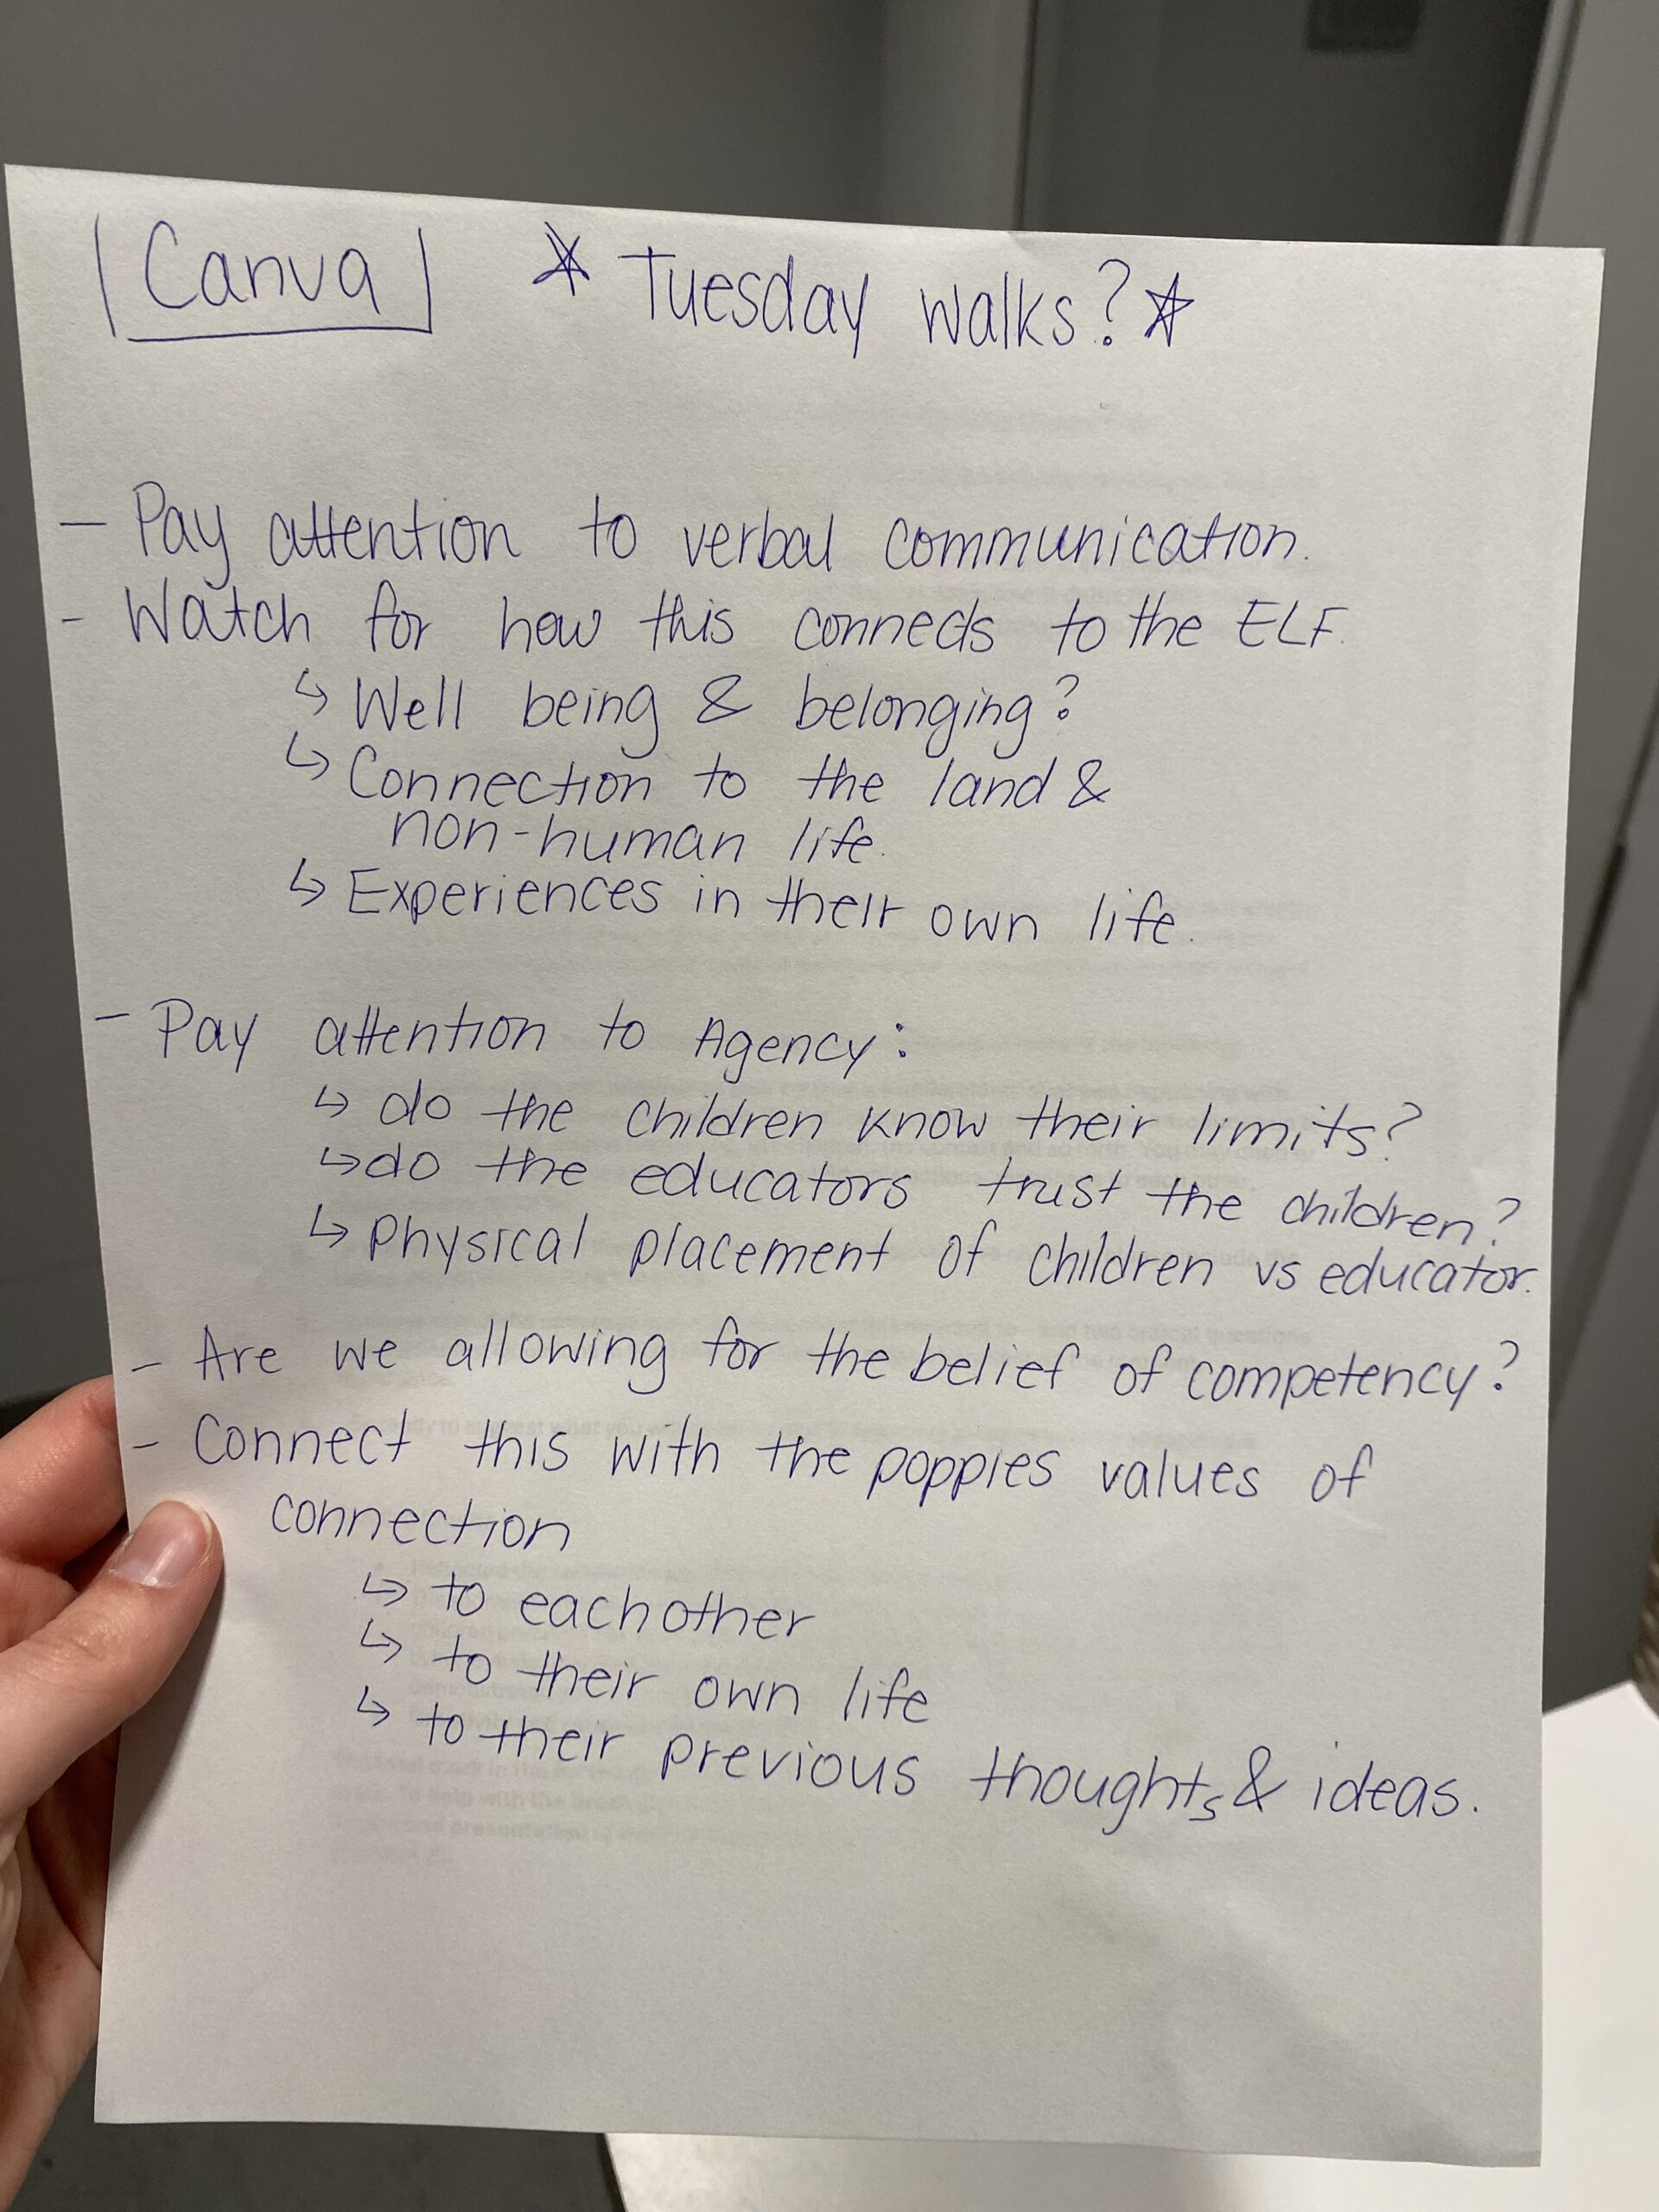 Canva * Tuesday walks? *
- Pay attention to verbal communication.
- Watch for how this connects to the ELF.
↳ Well being & belonging?
↳ Connection to the land &
non-human life.
↳ Experiences in their own life.
- Pay attention to Agency:
↳ do the children know their limits?
↳ do the educators trust the children?
↳ Physical placement of children vs educator.
- Are we allowing for the belief of competency?
- Connect this with the poppies values of
connection
↳ to eachother
↳ to their own life
↳ to their previous thoughts & ideas.